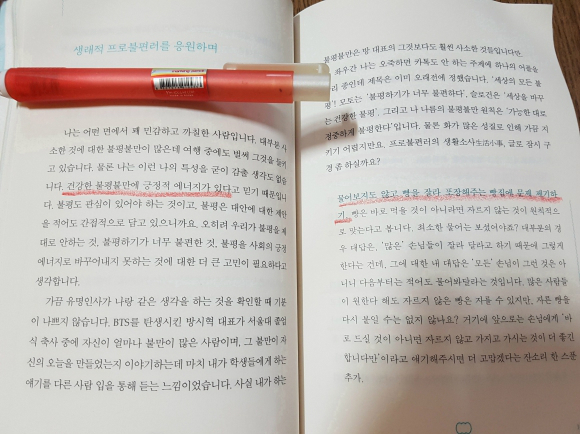 생래적 프로불편러를 응원하며
나는 어떤 면에서 꽤 민감하고 까칠한 사람입니다. 대부분 사
소한 것에 대한 불평불만이 많은데 여행 중에도 벌써 그것을 들키
고 있습니다. 물론 나는 이런 나의 특성을 굳이 감출 생각도 없습
니다. 건강한 불평불만에 긍정적 에너지가 있다고 믿기 때문입니
다. 불평도 관심이 있어야 하는 것이고, 불평은 대안에 대한 제안
을 적어도 간접적으로 담고 있으니까요. 오히려 우리가 불평을 제
대로 안하는 것, 불평하기가 너무 불편한 것, 불평을 사회의 긍정
에너지로 바꾸어내지 못하는 것에 대한 더 큰 고민이 필요하다고
생각합니다.
가끔 유명인사가 나랑 같은 생각을 하는 것을 확인할 때 기분
이 나쁘지 않습니다. BTS를 탄생시킨 방시혁 대표가 서울대 졸업
식 축사 중에 자신이 얼마나 불만이 많은 사람이며, 그 불만이 자
신의 오늘을 만들었는지 이야기하는데 마치 내가 학생들에게 하는
얘기를 다른 사람 입을 통해 듣는 느낌이었습니다. 사실 내가 하는
불평불만은 방 대표의 그것보다도 훨씬 사소한 것들입니다만.
좌우간 나는 오죽하면 카톡도 안 하는 주제에 하나의 어플을
리 중인데 제목은 이미 오래전에 정했습니다. '세상의 모든 불
평'! 모토는 '불평하기가 너무 불편하다', 슬로건은 '세상을 바꾸
는 건강한 불평'. 그리고 나 나름의 불평불만 원칙은 '가능한 대로
정중하게 불평한다'입니다. 물론 화가 많은 성질로 인해 가끔 지
키기 어렵지만요. 프로불편러의 생활소사生活小事, 글로 잠시 구
경 좀 하실까요?
물어보지도 않고 빵을 잘라 포장해주는 빵집에 문제 제기하
기. 빵은 바로 먹을 것이 아니라면 자르지 않는 것이 원칙적으
로 맞는다고 봅니다. 최소한 물어는 보셨어야죠? 대부분의 경
우 대답은, '많은' 손님들이 잘라 달라고 하기 때문에 그렇게
한다는 건데, 그에 대한 내 대답은 '모든' 손님이 그런 것은 아
니니 다음부터는 적어도 물어봐달라는 것입니다. 많은 사람들
이 원한다 해도 자르지 않은 빵은 자를 수 있지만, 자른 빵을
다시 붙일 수는 없지 않나요? 거기에 앞으로는 손님에게 '바
로 드실 것이 아니면 자르지 않고 가지고 가시는 것이 더 좋긴
합니다만'이라고 얘기해주시면 더 고맙겠다는 잔소리 한 스푼
추가.